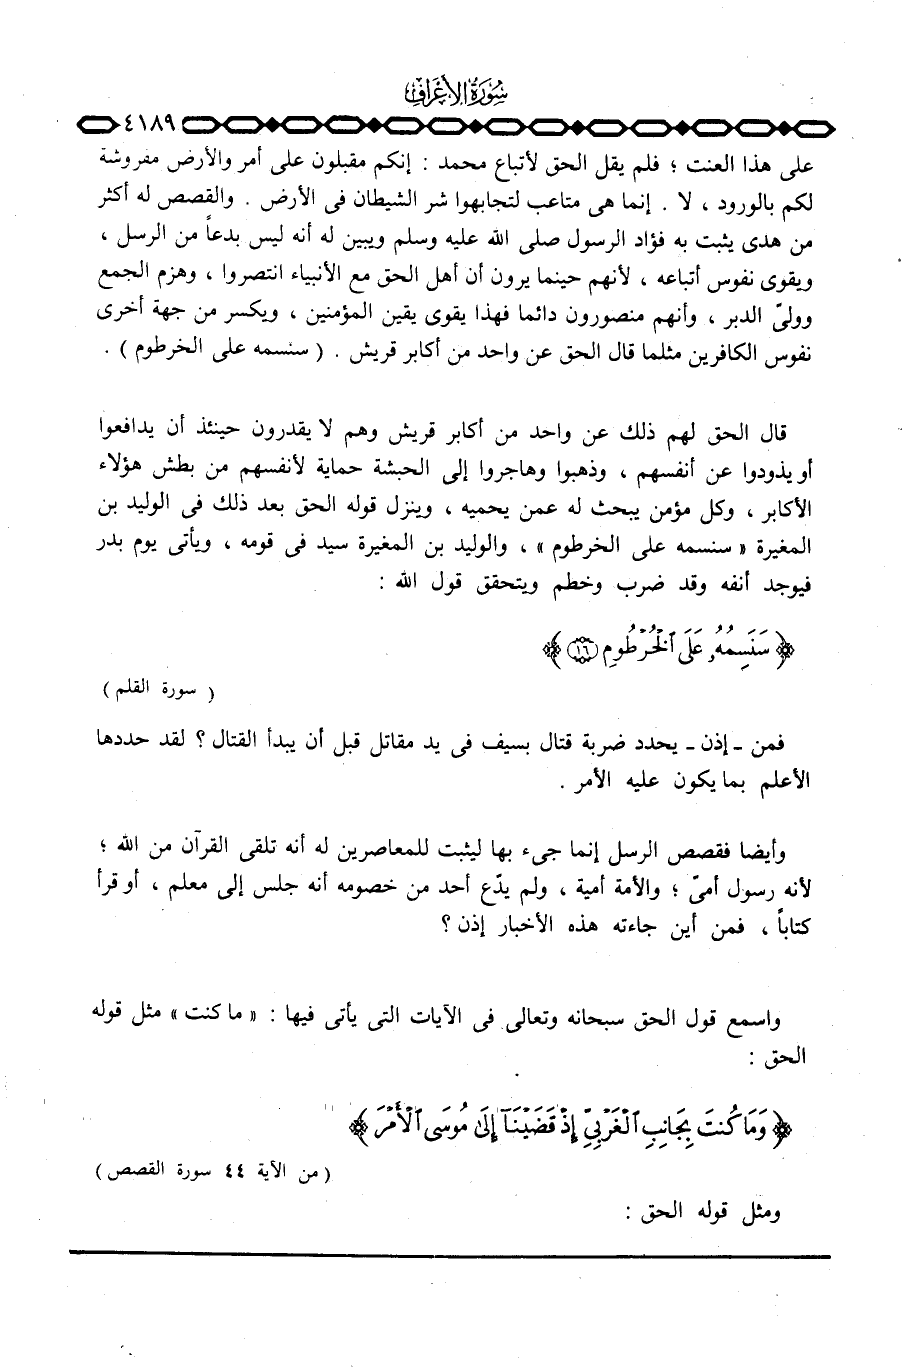 سورة الأعراف
٤١٨٩
على هذا العنت ؛ فلم يقل الحق لأتباع محمد : إنكم مقبلون على أمر والأرض مفروشة
لكم بالورود ، لا . إنما هى متاعب لتجابهوا شر الشيطان فى الأرض . والقصص له أكثر
من هدى يثبت به فؤاد الرسول صلى الله عليه وسلم ويبين له أنه ليس بدعاً من الرسل ،
ويقوى نفوس أتباعه ، لأنهم حينما يرون أن أهل الحق مع الأنبياء انتصروا ، وهزم الجمع
وولىّ الدبر ، وأنهم منصورون دائما فهذا يقوى يقين المؤمنين ، ويكسر من جهة أخرى
نفوس الكافرين مثلما قال الحق عن واحد من أكابر قريش . ( سنسمه على الخرطوم ) .
قال الحق لهم ذلك عن واحد من أكابر قريش وهم لا يقدرون حينئذ أن يدافعوا
أو يذودوا عن أنفسهم ، وذهبوا وهاجروا إلى الحبشة حماية لأنفسهم من بطش هؤلاء
الأكابر ، وكل مؤمن يبحث له عمن يحميه ، وينزل قوله الحق بعد ذلك فى الوليد بن
المغيرة « سنسمه على الخرطوم » ، والوليد بن المغيرة سيد فى قومه ، ويأتى يوم بدر
فيوجد أنفه وقد ضرب وخطم ويتحقق قول الله :
﴿ سَنَسِمُهُۥ عَلَى ٱلْخُرْطُومِ ١٦ ﴾
( سورة القلم )
فمن ـ إذن ـ يحدد ضربة قتال بسيف فى يد مقاتل قبل أن يبدأ القتال ؟ لقد حددها
الأعلم بما يكون عليه الأمر .
وأيضا فقصص الرسل إنما جىء بها ليثبت للمعاصرين له أنه تلقى القرآن من الله ؛
لأنه رسول أمىّ ؛ والأمة أمية ، ولم يدّع أحد من خصومه أنه جلس إلى معلم ، أو قرأ
كتاباً ، فمن أين جاءته هذه الأخبار إذن ؟
واسمع قول الحق سبحانه وتعالى فى الآيات التى يأتى فيها : « ما كنت » مثل قوله
الحق :
﴿ وَمَا كُنتَ بِجَانِبِ ٱلْغَرْبِىِّ إِذْ قَضَيْنَآ إِلَىٰ مُوسَى ٱلْأَمْرَ ﴾
( من الآية ٤٤ سورة القصص )
ومثل قوله الحق :